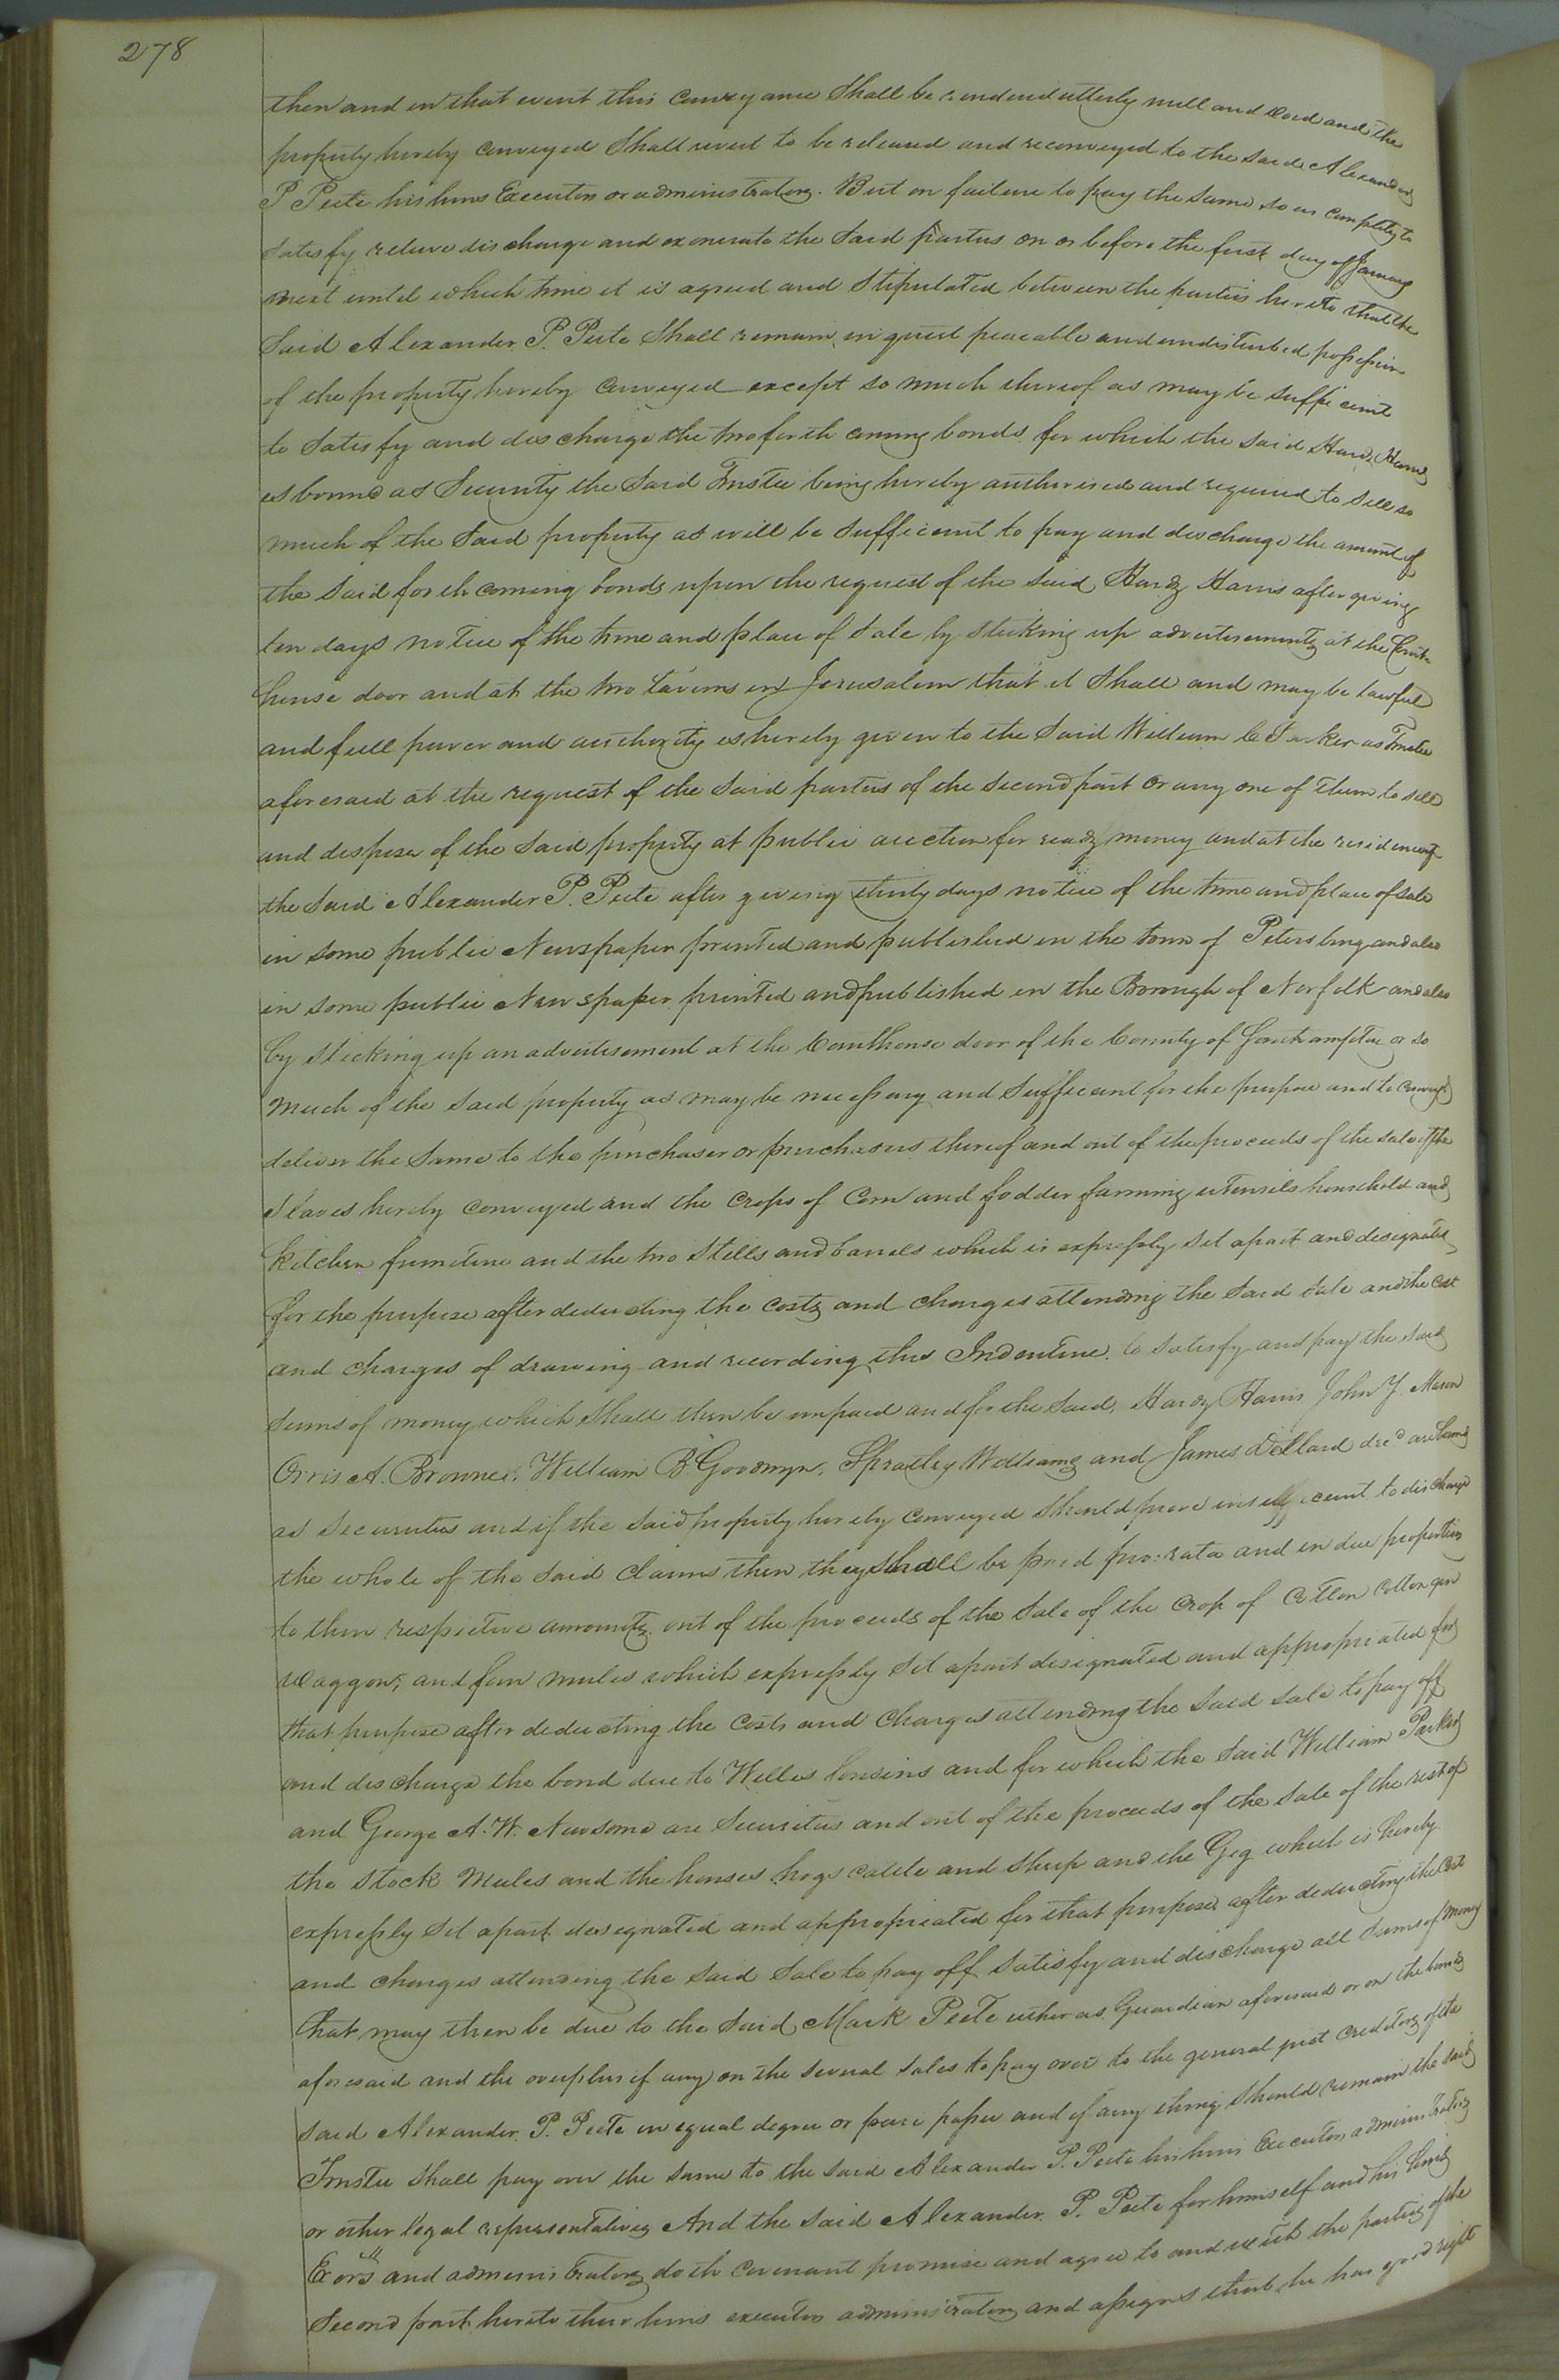 278
then and in that event this conveyance Shall be rendered utterly null and void and the
property hereby conveyed Shall revert to be released and reconveyed to the said Alexander
P Peete his heirs Executors or administrators. But on failure to pay the same so as completely to
satisfy relieve discharge and exonerate the Said parties on or before the first day of January
next until which time it is agreed and Stipulated between the parties hereto that the
Said Alexander P. Peete Shall remain in quiet peaceable and undisturbed possession
of the property hereby conveyed except so much thereof as may be sufficient
to Satisfy and discharge the two forth coming bonds for which the said Hardy Harris
is bound as Security the Said Trustee being hereby authorised and required to sell so
much of the Said property as will be sufficient to pay and discharge the amount of
the Said forth coming bonds upon the request of the said Hardy Harris after giving
ten days notice of the time and place of Sale by sticking up advertisements at the Court
house door and at the two taverns in Jerusalem that it Shall and may be lawful
and full power and authority is hereby given to the Said William C Parker as Trustee
aforesaid at the request of the said parties of the second part or any one of them to sell
and dispose of the Said property at public auction for ready money and at the residence of
the Said Alexander P. Peete after giving thirty days notice of the time and place of sale
in some public Newspaper printed and published in the town of Petersburg and also
in some public Newspaper printed and published in the Borough of Norfolk and also
by sticking up an advertisement at the Courthouse door of the County of Southampton or so
much of the Said property as may be necessary and Sufficient for the purpose and to convey &
deliver the Same to the purchaser or purchasers thereof and out of the proceeds of the sale of the
Slaves hereby conveyed and the crops of Corn and fodder farming utensils household and
kitchen furniture and the two Stills and barrels which is expressly set apart and designated
for the purpose after deducting the costs and charges attending the Said Sale and the cost
and charges of drawing and recording this Indenture to satisfy and pay the said
Sums of money which Shall then be unpaid and for the Said, Hardy Harris John Y. Mason
Orris A. Browne, William B. Goodwyn, Spratley Williams and James Dillard decd are bound
as securities and if the said property hereby conveyed should prove insufficient to discharge
the whole of the said Claims then they Shall be paid pro: rata and in due proportion
to their respective amounts out of the proceeds of the Sale of the crop of Cotton Cotton gin
waggon, and four mules which expressly set apart designated and appropriated for
that purpose after deducting the costs and charges attending the Said Sale to pay off
and discharge the bond due to Willis Cousins and for which the Said William Parker
and George A. W. Newsome are Securities and out of the proceeds of the Sale of the rest of
the Stock Mules and the horses hogs cattle and Sheep and the Gig which is hereby
expressly set apart designated and appropriated for that purpose after deducting the cost
and charges attending the Said Sale to pay off Satisfy and discharge all Sums of money
that may then be due to the Said Mark Peete either as Guardian aforesaid or on the bonds
aforesaid and the overplus if any on the several Sales to pay over to the general just creditors of the
said Alexander P. Peete in equal degree or pari passu and if any thing Should remain the said
Trustee Shall pay over the same to the said Alexander P. Peete his heirs Executors administrators
or other legal representatives And the said Alexander P. Peete for himself and his heirs
Exors and administrators doth covenant promise and agree to and with the parties of the
Second part hereto their heirs executors administrators and assigns that he has good right